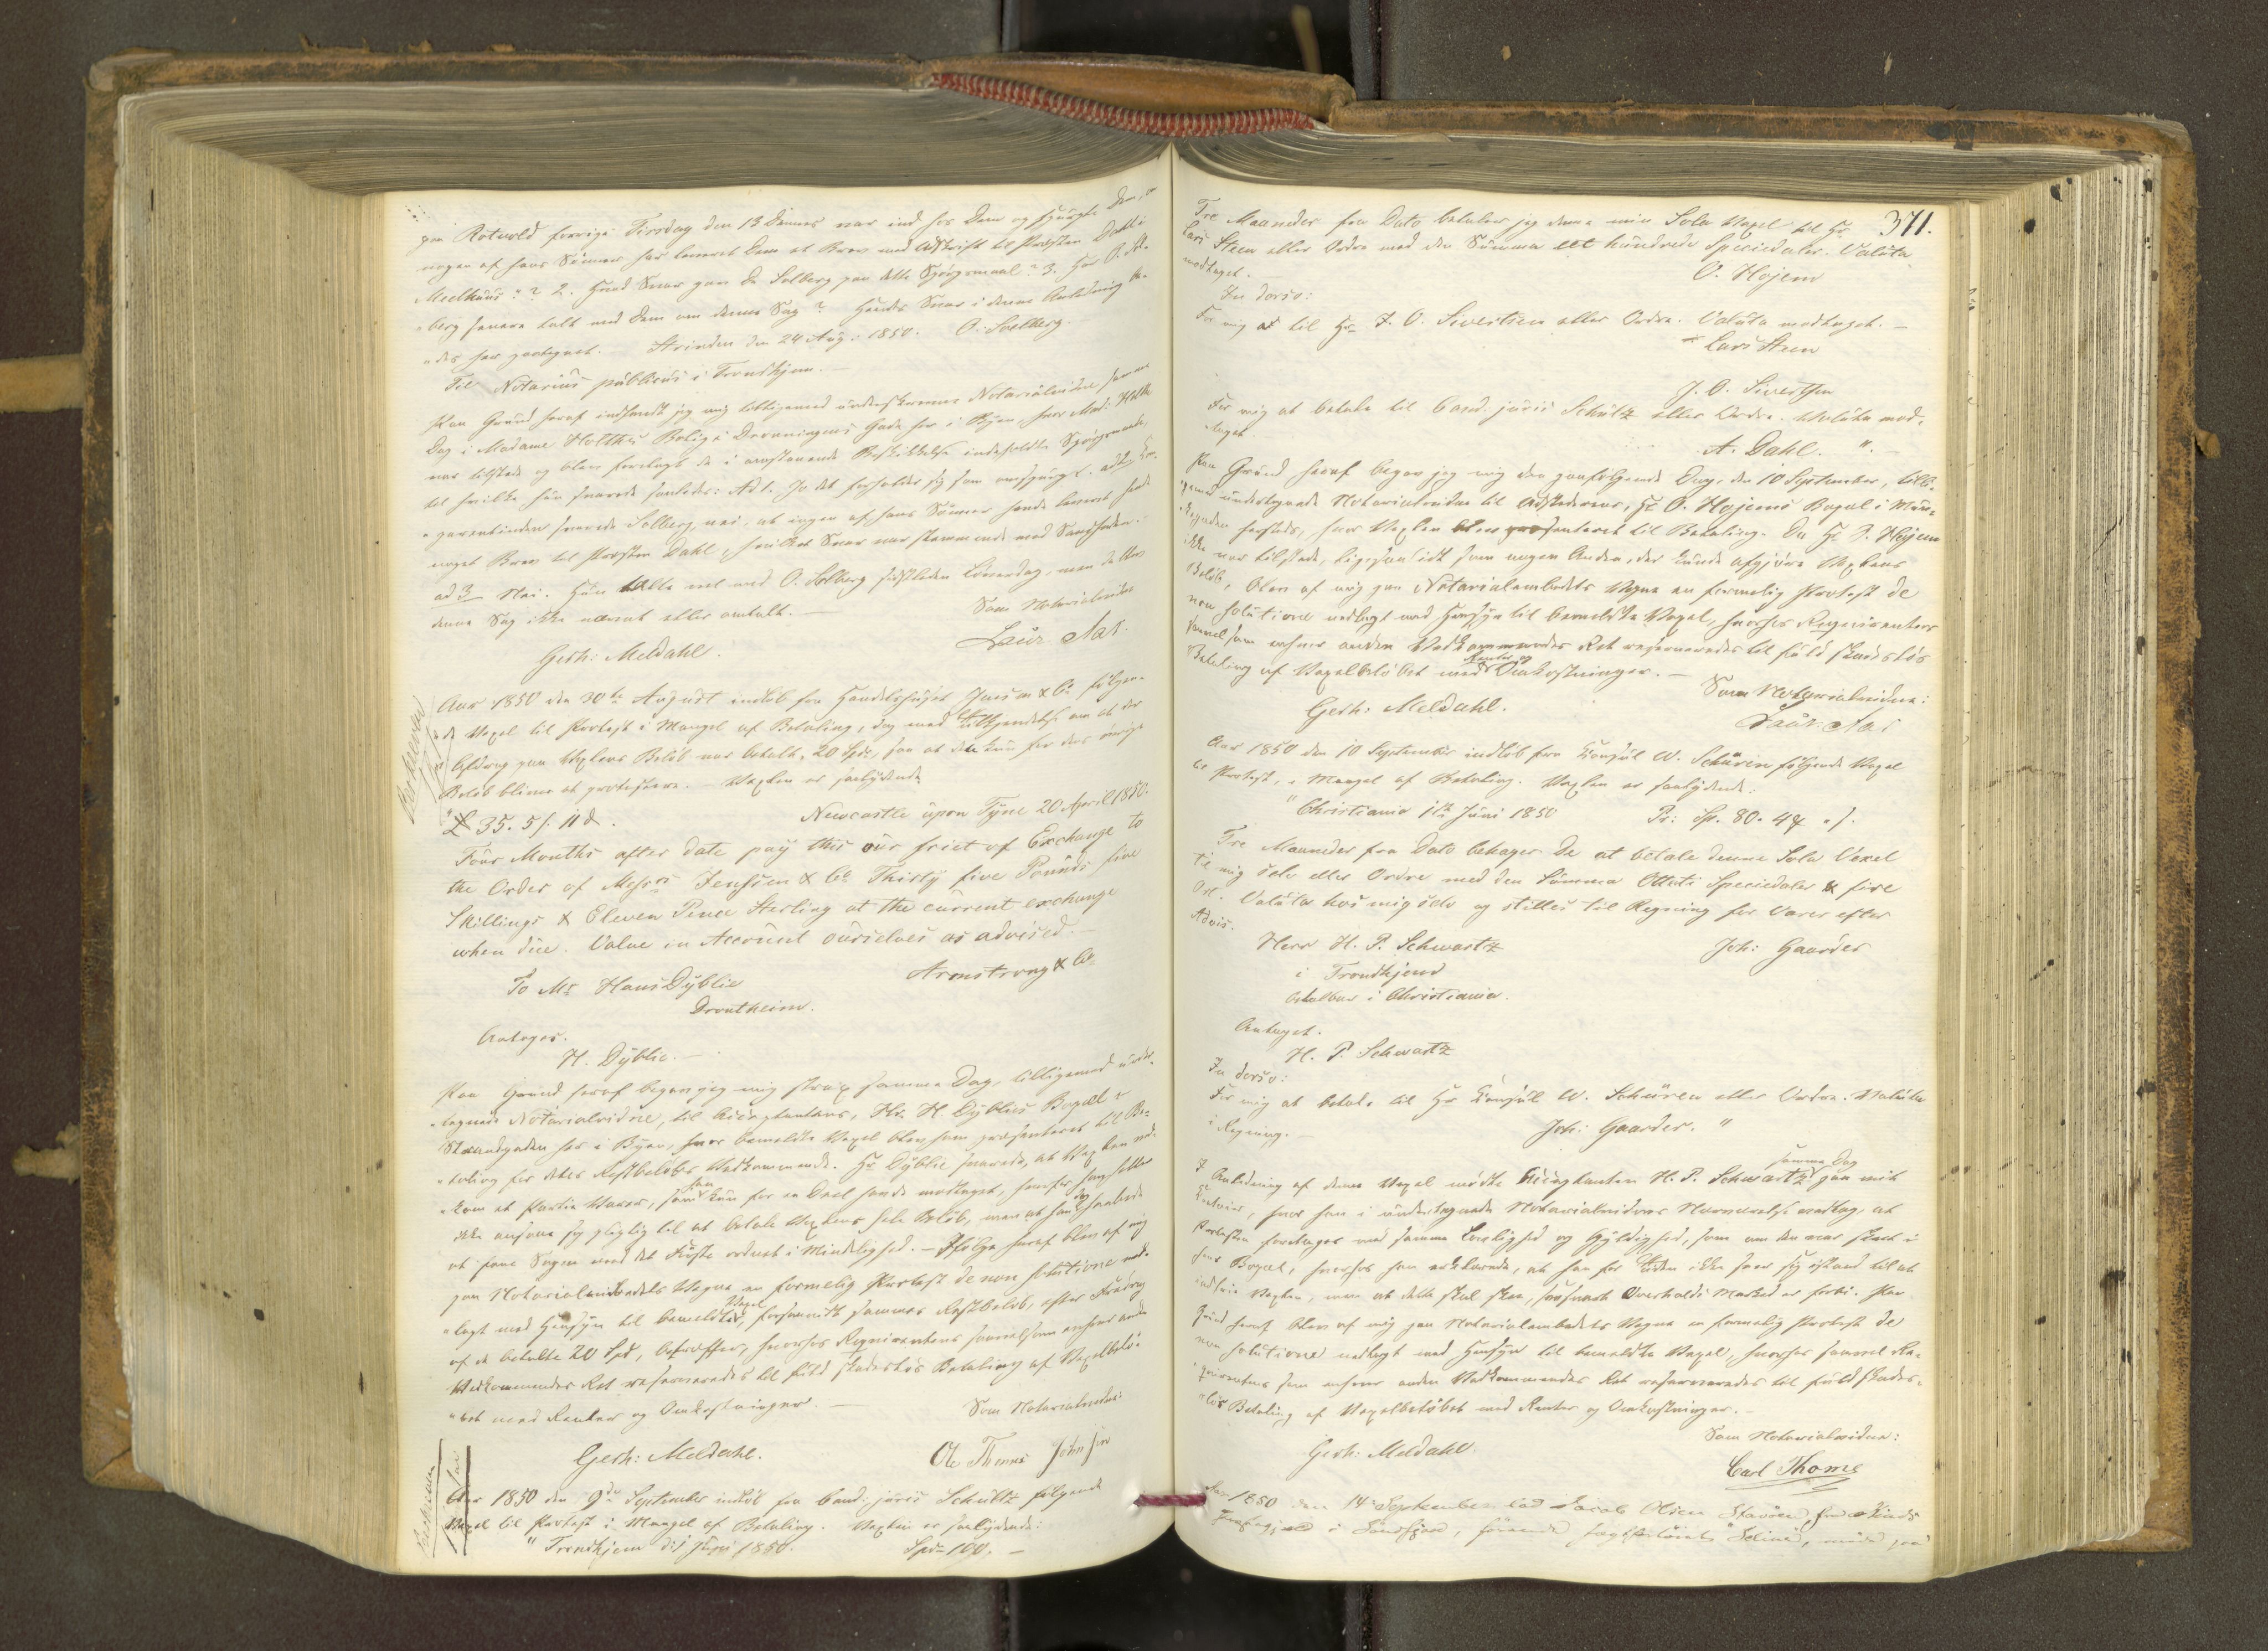 paa Rotvold forrige Tirsdag den 13 dennes var ind hos Dem og spurgte Dem, o
nogen af hans Sønner har leveret Dem et Brev med Udskrift til Præsten Dahl i
Meelhuus? 2. Hvad Svar gav De Solberg paa dette Spørgsmaal? 3. Har O. Sol-
berg senere talt med Dem om denne Sag? Hendes Svar i denne Anledning
des her paategnet. Strinden den 24 Aug: 1850. O. Soelberg.
Til Notarius publicus i Trondhjem.
Paa Grund heraf indfandt jeg mig tilligemed underskrevne Notarialvidne samme
Dag i Madame Holthes Bolig i Dronningens Gade her i Byen, hvor Mad: Holthe
var tilstede og blev forelagt de i ovenstaaende Beskikkelse indeholdte Spørgsmaale,
til hvilke hun svarede saaledes: Ad 1. Jo det forholder sig som omspurgt. ad 2,
noget Brev til Præsten Dahl, hvilket Svar var stemmende med Sandheden.
ad 3 Nei. Hun talte vel med O. Solberg sidstleden Løverdag, men da blev
denne Sag ikke nævnt eller omtalt.
Som Notarialvidne
Gerh: Meldahl.
Laur. Aas.
Beskreven
Aar 1850 den 30te August indløb fra Handelshuset Jensen & Co følgen-
de Vexel til Protest i Mangel af Betaling, dog med Tilkjendelse om at der
Afdrag paa Vexlens Beløb var betalt, 20 Spd, saa at det kun for det øvrige
Beløb bliver at protestere. Vexlen er saalydende
"£ 35. 5/. 11 d.
Newcastle upon Tyne 20 April 1850.
Four Months after date pay this our first of Exchange to
the Order of Messrs Jenssen & Co Thirty five Pounds five
Skillings & Eleven Pence Sterling at the current exchange
when due. Value in Account ourselves as advised.
Armstrong & Co
To Mr Hans Dyblie
Drontheim.
Antages.
H. Dyblie.
Paa Grund heraf begav jeg mig strax samme Dag, tilligemed under-
tegnede Notarialvidne, til Acceptantens, Hr. H. Dyblies Bopæl i
Strandgaden her i Byen, hvor bemeldte Vexel blev ham præsenteret til Be-
taling for dets Restbeløbs Vedkommende. Hr Dyblie svarede, at Vexlen ved-
kom et Partie Varer, som han kun for en Deel havde modtaget, hvorfor han holder
ikke ansaae sig pligtig til at betale Vexlens hele Beløb, men at han dog haabede
at faae Sagen med det Første ordnet i Mindelighed. Ifølge heraf blev af mig
paa Notarialembedets Vegne en formelig Protest de non solutione ned-
lagt med Hensyn til bemeldte Vexel, forsaavidt sammes Restbeløb, efter Fradrag
af de betalte 20 Spd, betræffer, hvorhos Reqvirentens saavelsom enhver anden
Vedkommendes Ret reserveredes til fuld skadesløs Betaling af Vexelbelø-
bet med Renter og Omkostninger.
Som Notarialvidne:
Gerh: Meldahl.
Ole Thomas Johnsen
Beskreven
Aar 1850 den 9de September indløb fra Cand: juris Schultz følgende
Vexel til Protest i Mangel af Betaling. Vexlen er saalydende:
"Trondhjem d: 1 Juni 1850. Spd 100.
371.
Tre Maaneder fra Dato betaler jeg denne min Sola Vexel til Hr
Lars Steen eller Ordre med den Summa eet hundrede Speciedaler. Valuta
modtaget.
O. Højem
In dorso:
For mig at til Hr J. O. Sivertsen eller Ordre. Valuta modtaget.
Lars Steen
J. O. Sivertsen
For mig at betale til Cand: juris Schultz eller Ordre. Valuta mod-
taget.
A. Dahl. ".
Paa Grund heraf begav jeg mig den paafølgende Dag, den 10 September, tillige-
med undertegnede Notarialvidne til Udstederens, Hr O. Højems Bopæl i Mun-
kegaden hersteds, hvor Vexlen blev præsenteret til Betaling. Da Hr O. Højem
ikke var tilstede, ligesaalidt som nogen Anden, der kunde afgjøre Vexlens
Beløb, blev af mig paa Notarialembedets Vegne en formelig Protest de
non solutione nedlagt med Hensyn til bemeldte Vexel, hvorhos Reqvirentens
saavelsom enhver anden Vedkommendes Ret reserveredes til fuld skadesløs
Betaling af Vexelbeløbet med Renter og Omkostninger.
Som Notarialvidne:
Gerh: Meldahl.
Laur: Aas
Aar 1850 den 10 September indløb fra Konsul W. Schüren følgende Vexel
til Protest, i Mangel af Betaling. Vexlen er saalydende:
"Christiania 1ste Juni 1850 Pr: Sp. 80. 4 /.
Tre Maaneder fra Dato behager De at betale denne Sola Vexel
til mig selv eller Ordre med den Summa Otteti Speciedaler & fire
Ort. Valuta hos mig selv og stilles til Regning for Varer efter
Advis.
Joh: Gaarder
Herr H. P. Schwartz
i Trondhjem
betalbar i Christiania.
Antaget.
H. P. Schwartz
In dorso:
For mig at betale til Hr Konsul W. Schüren eller Ordre. Valuta
i Regning.
Joh: Gaarder. "
I Anledning af denne Vexel mødte Acceptanten H. P. Schwartz samme Dag paa mit
Contoir, hvor han i undertegnede Notarialvidnes Nærværelse vedtog, at
Protesten foretages med samme Lovlighed og Gyldighed, som om den var skeet i
hans Bopæl, hvorhos han erklærede, at han for Tiden ikke saae sig istand til at
indfrie Vexlen, men at dette skal skee, saasnart Overhalds Marked er forbi. Paa
Grund heraf blev af mig paa Notarialembedets Vegne en formelig Protest de
non solutione nedlagt med Hensyn til bemeldte Vexel, hvorhos saavel Re-
qvirentens som enhver anden Vedkommendes Ret reserveredes til fuld skades-
løs Betaling af Vexelbeløbet med Renter og Omkostninger.
Som Notarialvidne:
Gerh: Meldahl.
Carl Thome
Aar 1850 den 14 September lod Jacob Olsen
i førende